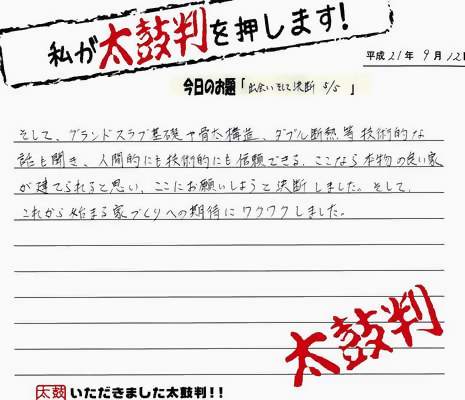 私が太鼓判を押します!
平成21年9月12日
今日のお題「出会いそして決断 5/5 」
そして、グランドスラブ基礎や骨太構造、ダブル断熱等技術的な
話も聞き、人間的にも技術的にも信頼できる、ここなら本物の良い家
が建てられると思い、ここにお願いしようと決断しました。そして、
これから始まる家づくりへの期待にワクワクしました。
太鼓判
太鼓いただきました太鼓判!!